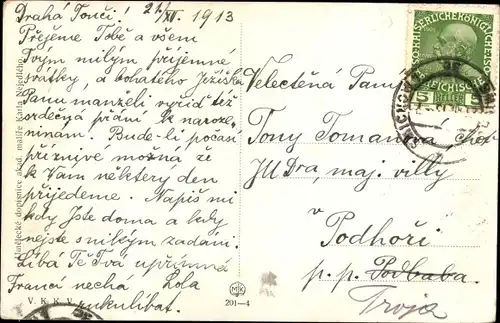 Drahá Tonči! 21/XII. 1913
Přejeme Tobě a všem
svým milým příjemné
svátky, a bohatého ježíška
Panu manželi vyřiď též
srdečná přání k naroze-
ninám. Bude-li počasí
příznivé možna že
k Vám některy den
přijedeme. Napiš mi
kdy Jste doma a kdy
nejste s nikým zadáni.
Líbá Tě Tvá upřímná
Francí nechá Lola
rukulíbat.
V. K. K. V.
Umělecké dopisnice akad. malíře Karla
MK
201-4
5 HELLER 5
SMÍCHOV
Velectěná Paní
Tony Tomanova, choť
JUDra, maj. villy
v
Podhoří
p. p. Podbaba.
Troja